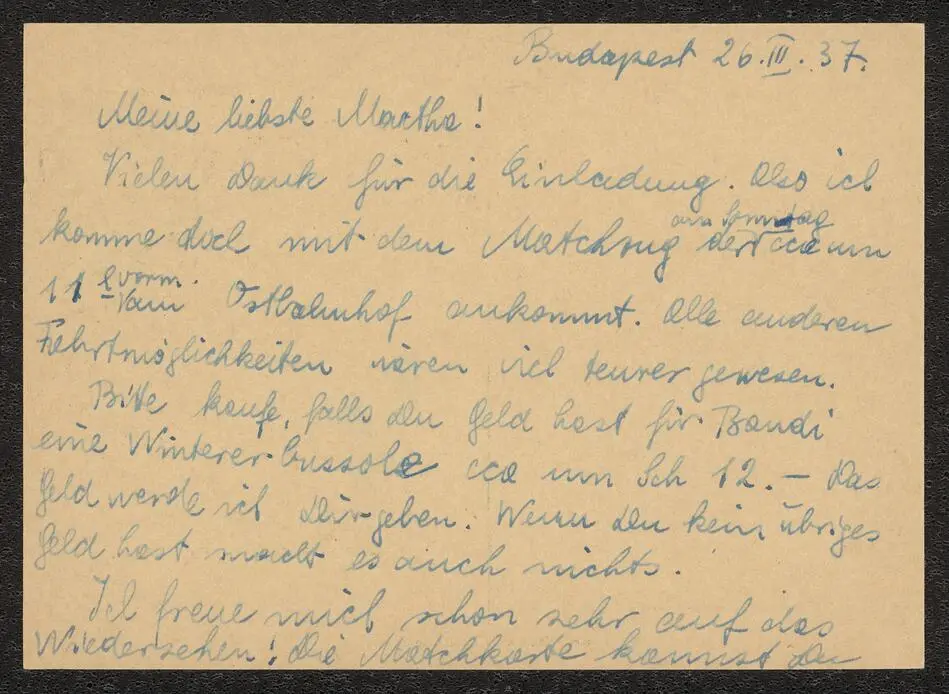 Budapest 26.III.37.
Meine liebste Martha!
Vielen Dank für die Einladung. Also ich
am Sonntag
komme doch mit dem Matchzug der cca um
11 h vorm.
Vam Ostbahnhof ankommt. Alle anderen
Fahrtmöglichkeiten wären viel teurer gewesen.
Bitte kaufe, falls Du Geld hast für Bandi
eine Winterer-bussole cca um Sch 12.– Das
Geld werde ich Dir geben. Wenn Du kein übriges
Geld hast macht es auch nichts.
Ich freue mich schon sehr auf das
Wiedersehen! Die Matchkarte kannst Du